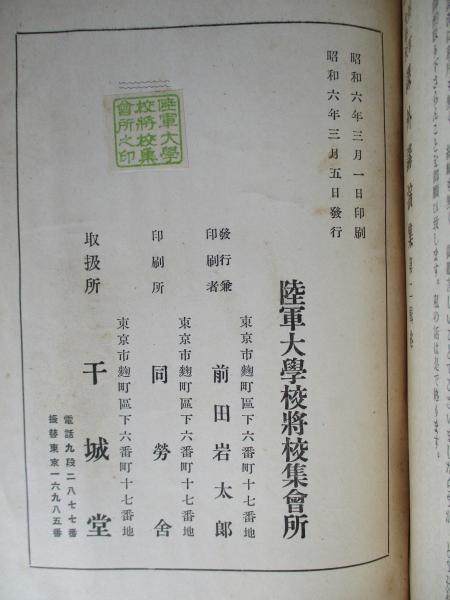 昭和六年三月一日印刷
昭和六年三月五日發行
陸軍大學
校將校集
會所之印
陸軍大學校將校集會所
東京市麴町區下六番町十七番地
發行兼
印刷者
前田岩太郎
東京市麴町區下六番町十七番地
印刷所
同勞舍
東京市麴町區下六番町十七番地
取扱所
干城堂
電話九段二八七七番
振替東京一六九八五番